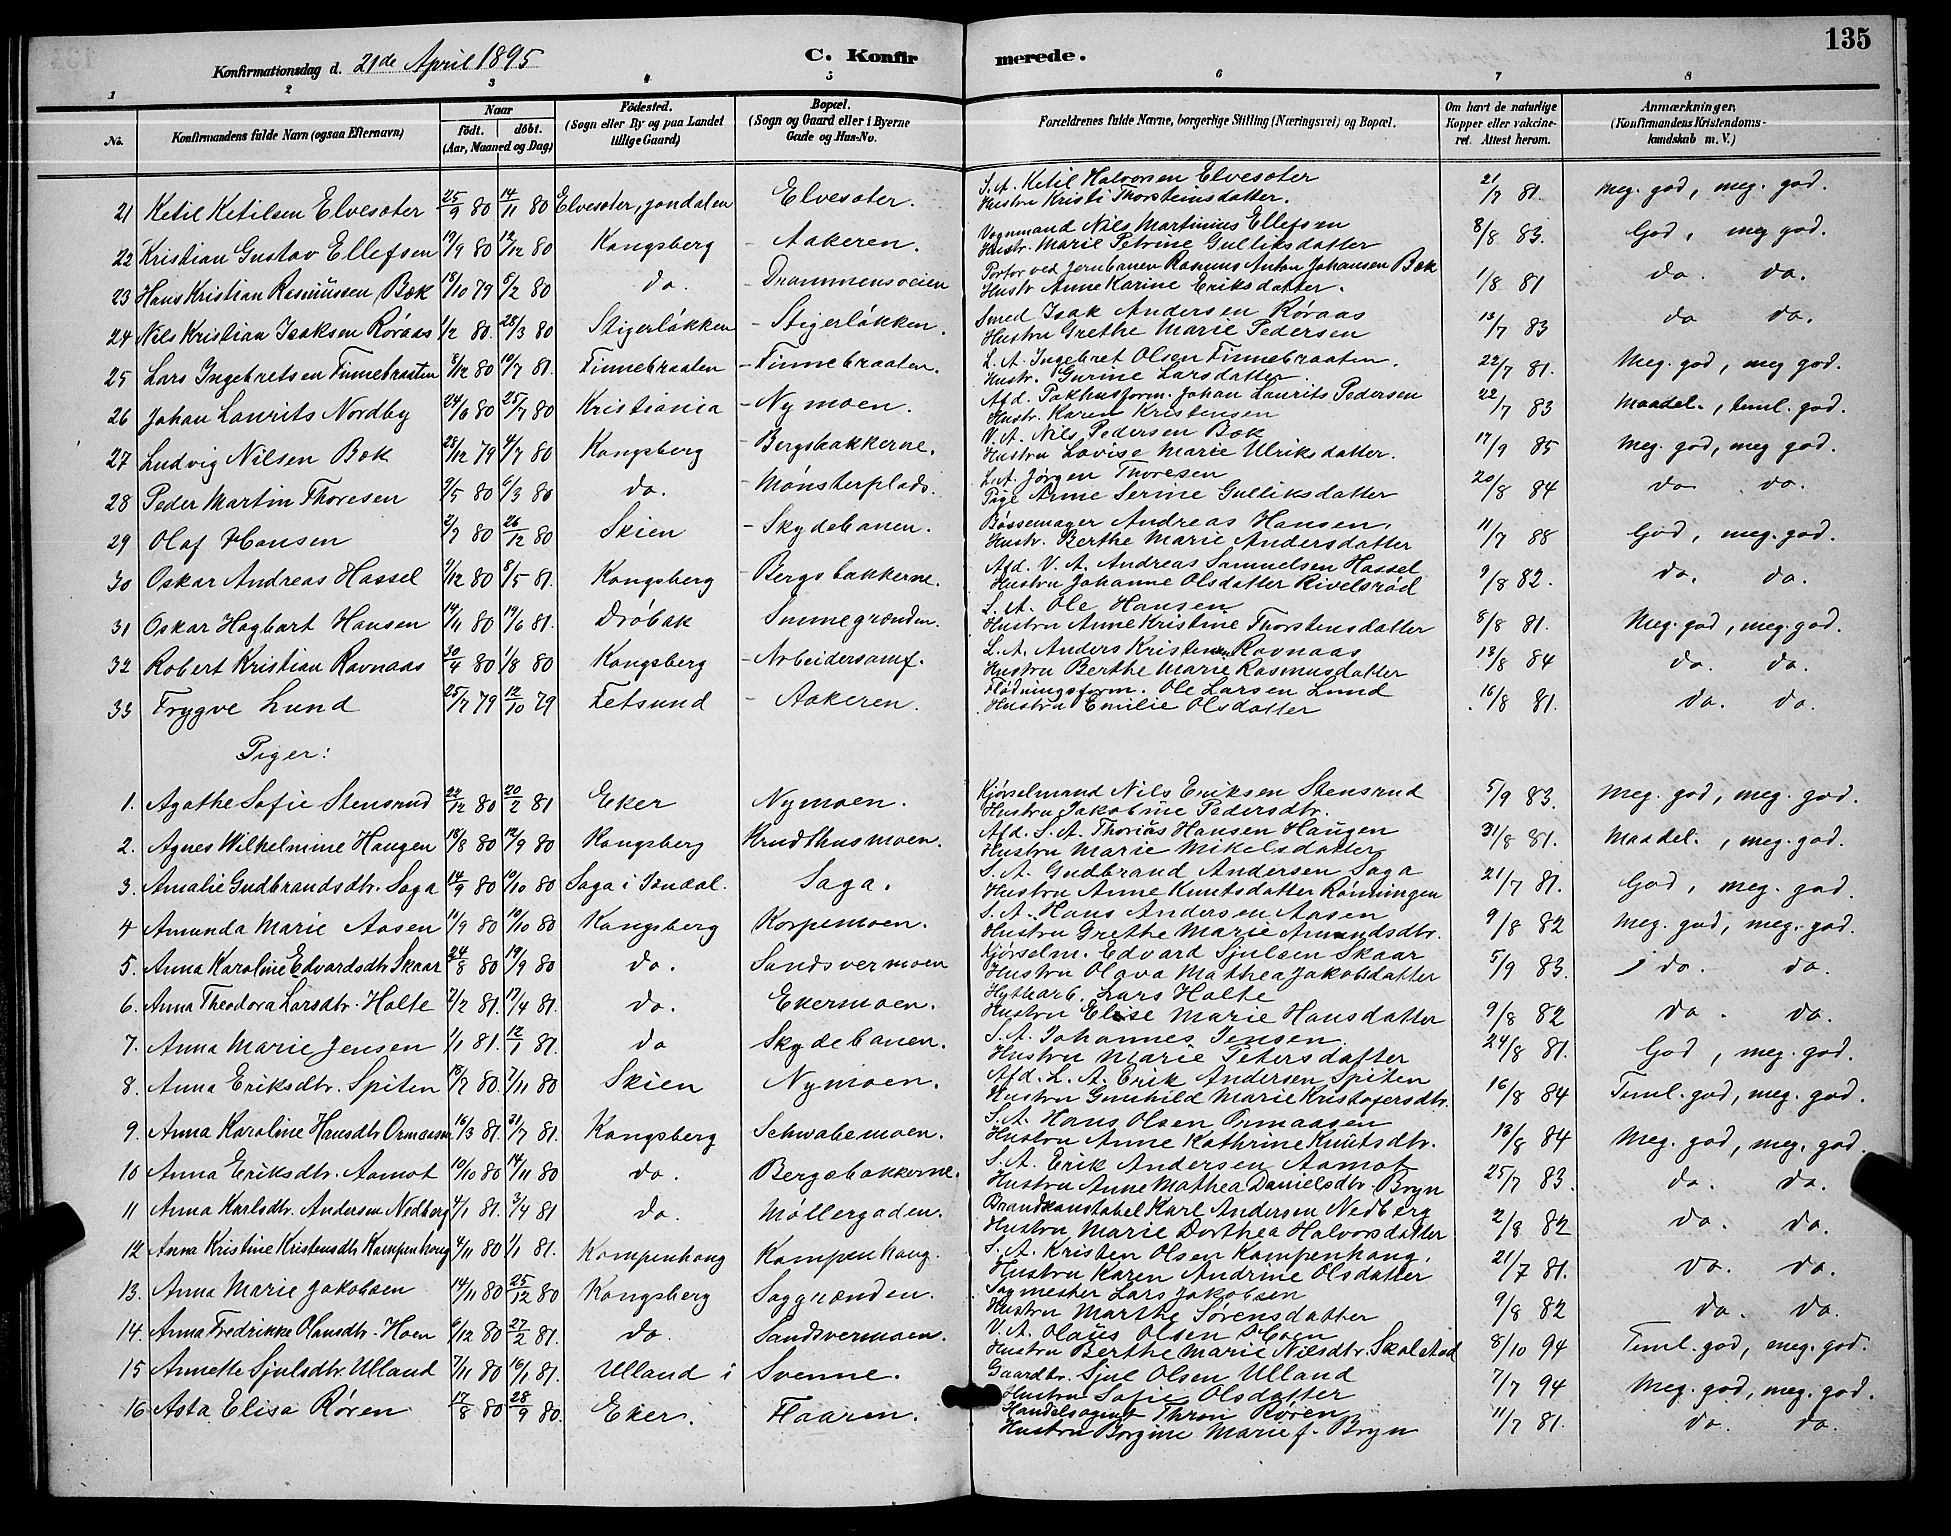 135
Konfirmationsdag d. 21de April 1895
C. Konfirmerede.
1 2 3 4 5 6 7 8
No. Konfirmandens fulde Navn (ogsaa Efternavn) Naar født. døbt. (Aar, Maaned og Dag) Fødested. (Sogn eller By og paa Landet tillige Gaard) Bopæl. (Sogn og Gaard eller i Byerne Gade og Hus-No. Forældrenes fulde Navne, borgerlige Stilling (Næringsvei) og Bopæl. Om havt de naturlige Kopper eller vakcineret. Attest herom. Anmærkninger, (Konfirmandens Kristendomskundskab m. V.)
21 Ketil Ketilsen Elvesæter 25/9 80 14/11 80 Elvesøter, Jondalen Elvesæter. S. A. Ketil Halvorsen Elvesæter 21/7 81. Meg. god, meg. god.
Hustru Kristi Thorsteinsdatter.
22 Kristian Gustav Ellefsen 19/9 80 12/12 80 Kongsberg - Aakeren. Vognmand Nils Martinius Ellefsen 8/8 83. God, meg god.
Hustr. Marie Petrine Gulliksdatter
23 Hans Kristian Rasmussen Bæk 18/10 79 6/2 80 do. - Drammensveien Portør ved Jernbanen Rasmus Anton Johansen Bæk 1/8 81 do. do.
Hustr Anne Karine Eriksdatter.
24 Nils Kristian Isaksen Røraas 1/2 80. 28/3 80 Stigerløkken - Stigerløkken. Smed Isak Andersen Røraas 13/7 83 do do.
Hustru Grethe Marie Pedersen
25 Lars Ingebretsen Finnebraaten 8/12 80 10/7 81. Finnebraaten - Finnebraaten. L. A. Ingebret Olsen Finnebraaten. 22/7 81. Meg. god, meg god.
Hustr. Gurine Larsdatter
26 Johan Laurits Nordby 24/6 80 25/7 80 Kristiania - Nymoen. Afd. Pakhusform. Johan Laurits Pedersen 22/7 83 Maadel., teml. god.
Hustr. Karen Kristensen
27 Ludvig Nilsen Bæk 28/12 79 4/7 80 Kongsberg - Bergsbakkerne. V. A. Nils Pedersen Bæk 17/9 85 Meg. god, meg god.
Hustru Lovise Marie Ulriksdatter.
28 Peder Martin Thoresen 80 6/3 80 do. - Mønsterplads. L. A. Jørgen Thoresen 20/8 84 do do.
Pige Anne Serine Gulliksdatter
29 Olaf Hansen 2/7 80 26/12 80 Skien - Skydebanen. Bøssemager Andreas Hansen, 11/7 88 God, meg. god.
Hustr. Berthe Marie Andersdatter
30 Oskar Andreas Hassel 7/12 80 8/5 81. Kongsberg - Bergsbakkerne. Afd. V. A. Andreas Samuelsen Hassel 9/8 82. do. do.
Hustru Johanne Olsdatter Rivelsrød
31 Oskar Hagbart Hansen 14/11 80 19/6 81. Drøbak Smnegrænden. S. A. Ole Hansen 8/8 81. Meg. god, meg. god.
Hustru Anne Kristine Thorstensdatter
32 Robert Kristian Ravnaas 30/4 80 1/8 80 Kongsberg - Arbeidersamf. L. A. Anders Kristensen Ravnaas 13/8 84 do. do.
Hustru Berthe Marie Rasmusdatter
33 Trygve Lund 25/7 79 12/10 79 Fetsund - Aakeren. Flødningsform. Ole Larsen Lund 16/8 81. do. do.
Hustru Emilie Olsdatter
Piger:
1. Agathe Sofie Stensrud 22/12 80 20/2 81 Eker Nymoen. Kjørselmand Nils Eriksen Stensrud 5/9 83. Meg. god, meg. god.
Hustru Jakobine Pedersdtr.
2. Agnes Wilhelmine Haugen 18/8 80 12/9 80 Kongsberg Krudthusmoen. Afd. S. A. Thorias Hansen Haugen 31/8 81. Maadel., meg. god.
Hustru Marie Mikelsdatter
3. Amalie Gudbrandsdtr. Saga 14/9 80 10/10 80 Saga i Jondal. Saga. S. A. Gudbrand Andersen Saga 21/7 81. God, meg. god.
Hustru Anne Knutsdatter Rønningen
4 Amunda Marie Aasen 11/9 80 10/10 80 Kongsberg Korpemoen. S. A. Hans Andersen Aasen 9/8 82 Meg. god, meg. god.
Hustru Grethe Marie Amundsdtr.
5. Anna Karoline Edvardsdtr Skaar 24/8 80 19/9 80 do. Sandsvermoen Kjørselm. Edvard Sjulsen Skaar 5/9 83. do. do.
Hustru Olava Mathea Jakobsdatter
6. Anna Theodora Larsdtr. Holte 7/2 81. 17/4 81. do. Ekermoen. Hyttearb. Lars Holte 9/8 82 do. do.
Hustru Elise Marie Hansdatter
7. Anna Marie Jensen 1/1 81. 12/1 81. do Skydebanen. S. A. Johannes Jensen. 24/8 81. God, meg. god.
Hustru Marie Petersdatter
8. Anna Eriksdtr. Spiten 18/7 80. 7/11 80 Skien Nymoen. Afd. L. A. Erik Andersen Spiten 16/8 84 Teml. god, meg. god.
Hustru Gunhild Marie Kristofersdtr.
9. Anna Karoline Hansdtr Ormaasen 16/3 81. 31/7 81. Kongsberg Schwabemoen. S. A. Hans Olsen Ormaasen 13/8 84 Meg. god, meg. god.
Hustru Anne Kathrine Knutsdtr.
10 Anna Eriksdtr. Aamot 10/10 80 14/11 80 do. Bergsbakkerne. S. A. Erik Andersen Aamot 25/7 83. do. do.
Hustru Anne Mathea Danielsdtr. Bryn
11 Anna Karlsdtr. Andersen Nedberg 4/1 81. 3/4 81 do. Møllergaden. Brandkonstabel Karl Andersen Nedberg 2/8 82 do. do.
Hustru Marie Dorthea Halvorsdatter
12 Anna Kristine Kristensdtr Kampenhaug 4/11 80 1/1 81. Kampenhaug Kampenhaug. S. A. Kristen Olsen Kampenhaug. 21/7 81. do. do.
Hustru Karen Andrine Olsdatter
13. Anna Marie Jakobsen 14/11 80 25/12 80 Kongsberg Saggrænden. Sagmester Lars Jakobsen 9/8 82 do. do.
Hustru Marthe Sørensdatter
14. Anna Fredrikke Olausdtr. Hoen 6/12 80 27/2 81. do. Sandsvermoen. V. A. Olaus Olsen Hoen 8/10 94 Teml. god, meg. god.
Hustru Berthe Marie Nilsdtr. Skolestad
15 Annette Sjulsdtr. Ulland 7/11 80 16/1 81. Ulland i Svenne. Gaardbr. Sjul Olsen Ulland 7/7 94 Meg. god, meg. god.
Hustru Sofie Olsdatter
16 Asta Elisa Røren 17/8 80 28/9 80. Eker. Flaaren. Handelsagent Thron Røren 11/7 81. do. do.
Hustru Borgine Marie f. Bryn